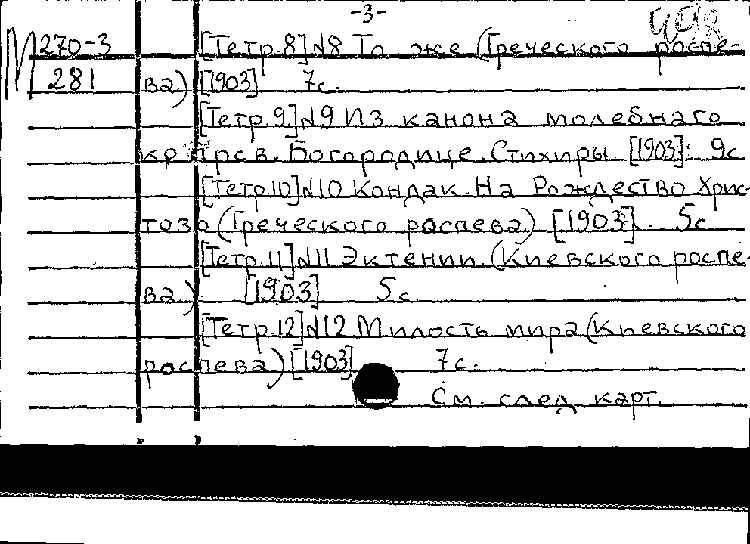 -3-
М 270-3 [Тетр.8] №8 То же (Греческого роспе-
281 ва) [1903] 7с.
[Тетр.9] №9 Из канона молебнаго
кo Пресв. Богородице. Стихиры [1903]. 9с
[Тетр.10] №10 Кондак. На Рождество Хрис-
тово (Греческого распева) [1903]. 5с
[Тетр.11] №11 Эктении. (Киевского роспе-
ва) [1903] 5с
[Тетр.12] №12 Милость мира (Киевского
роспева) [1903] 7с.
См. след карт.